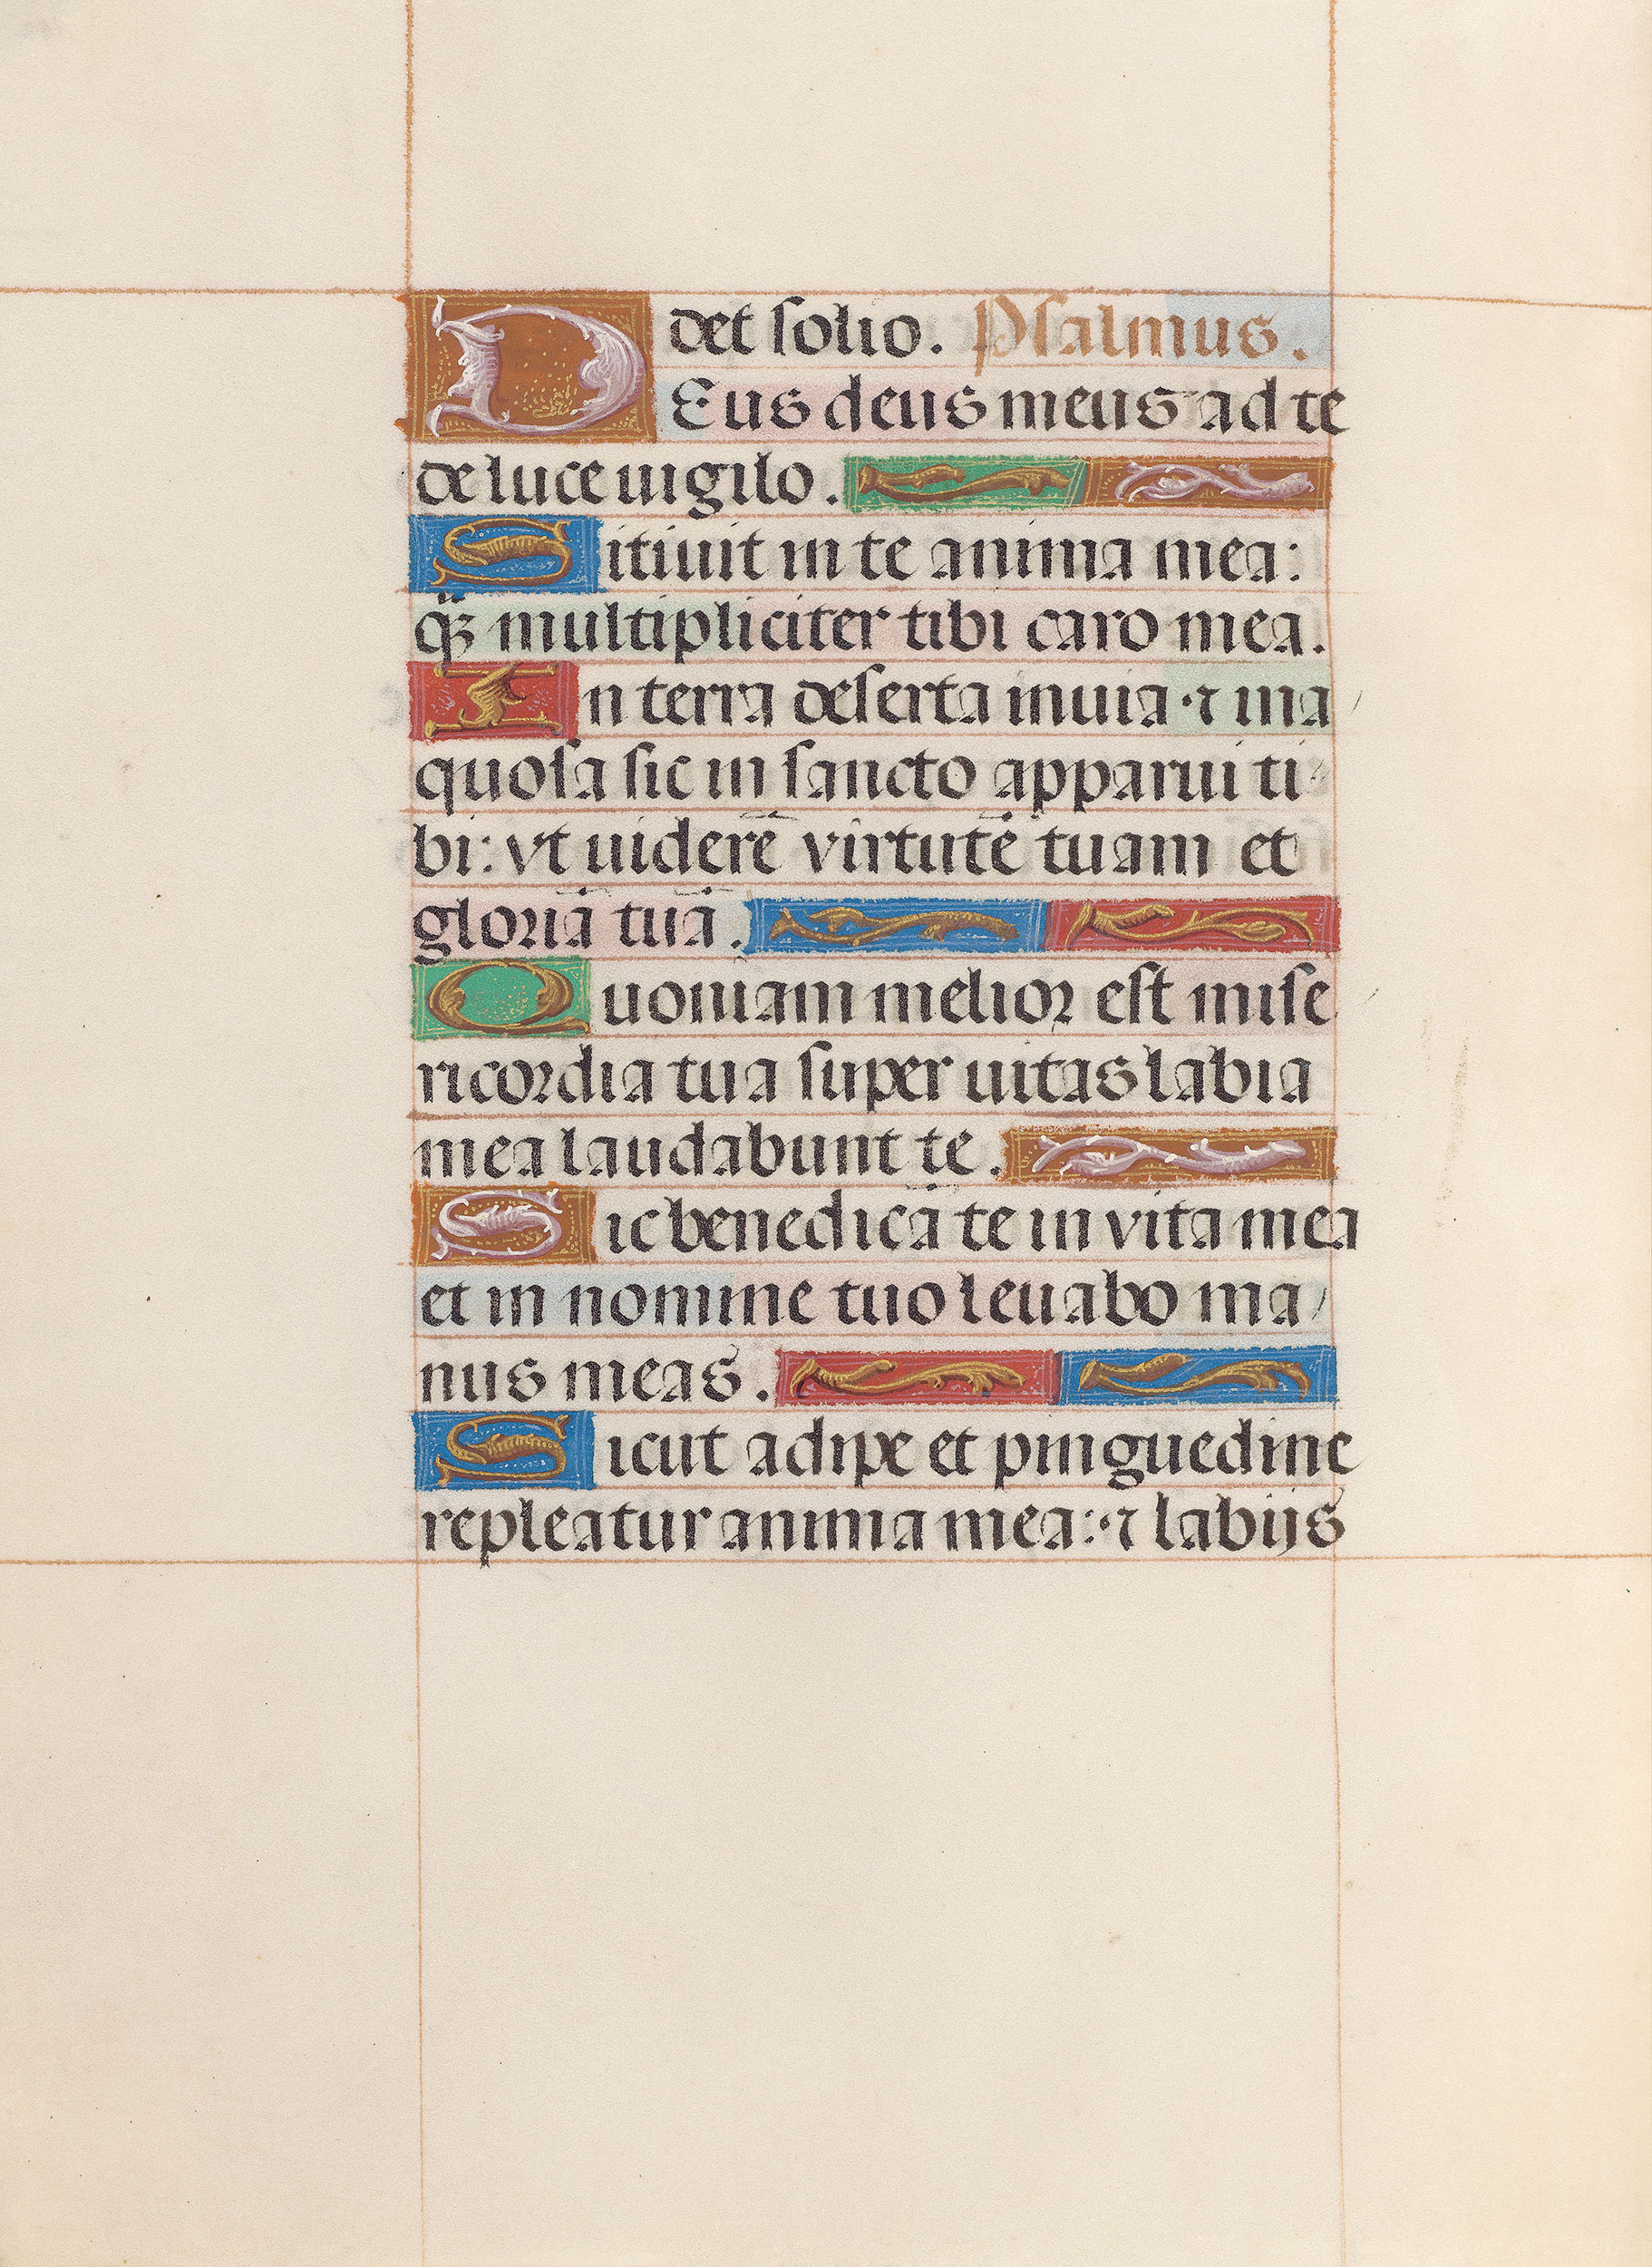 det solio. Psalmus.
DEus deus meus ad te
de luce uigilo.
Sitiuit in te anima mea:
q̈ꝫ multipliciter tibi caro mea.
In terra deserta inuia ⁊ ina
quosa sic in sancto apparui ti
bi: vt uiderē virtutē tuam et
gloriā tuā.
Quoniam melior est mise
ricordia tua super uitas labia
mea laudabunt te.
Sic benedicā te in vita mea
et in nomine tuo leuabo ma
nus meas.
Sicut adipe et pinguedine
repleatur anima mea: ⁊ labijs